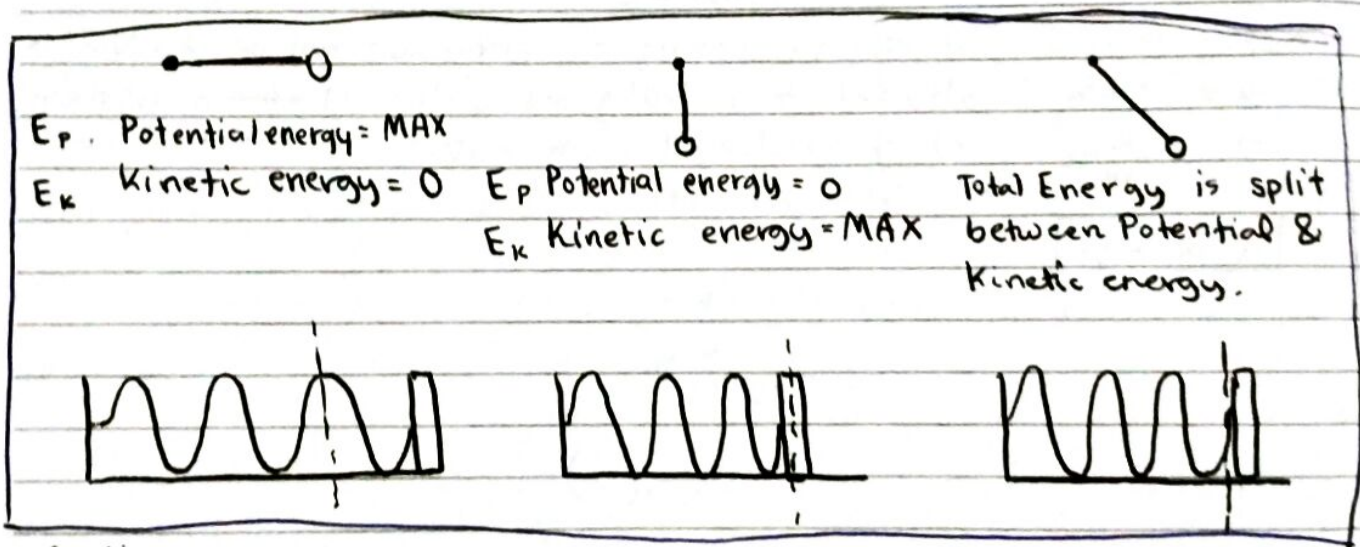 Ep. Potential energy = MAX
Ek Kinetic energy = 0
Ep Potential energy = 0
Ek Kinetic energy = MAX
Total Energy is split
between Potential &
Kinetic energy.